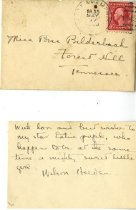 Miss Bess Bilderback
Forest Hill
Tennessee
With love and best wishes to
my star Latin pupil, who
happens to be at the same
time a mighty sweet little
girl.
Helen